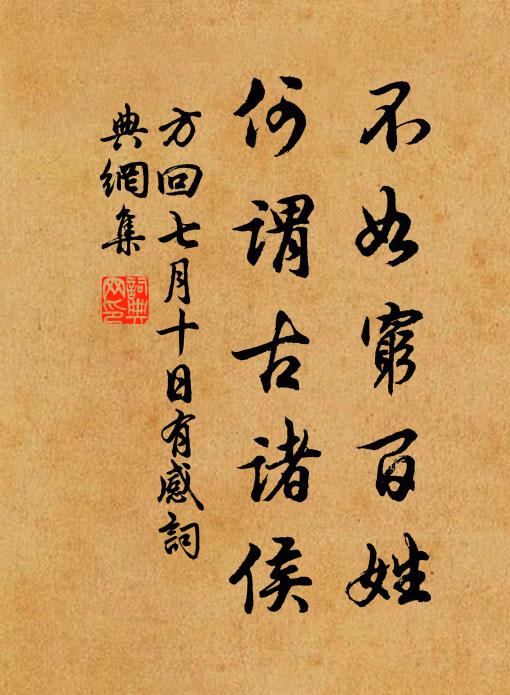 不如窮百姓
何謂古諸侯
方回七月十日有感詞
典網集
詞典網印